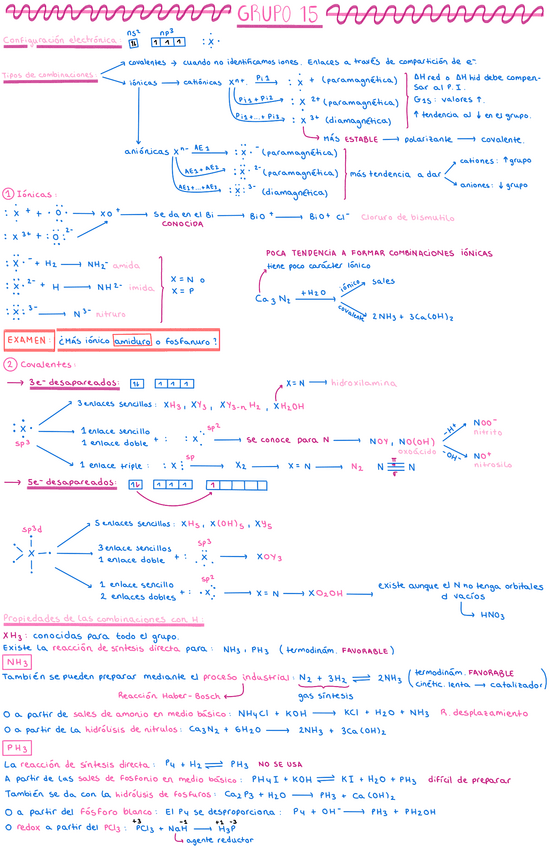 GRUPO 15
Configuración electrónica: ns² np³ :Ẋ·
Tipos de combinaciones:
covalentes → cuando no identificamos iones. Enlaces a través de compartición de e⁻
iónicas → catiónicas Xⁿ⁺ Pi1 → :Ẋ + (paramagnética)
Pi1 + Pi2 → :Ẋ 2+ (paramagnética)
Pi1+...+Pi3 → :X 3+ (diamagnética)
ΔH red o ΔH hid debe compensar al P.I.
G15: valores ↑.
↑ tendencia al ↓ en el grupo.
MÁS ESTABLE → polarizante → covalente.
aniónicas Xⁿ⁻ AE1 → :Ẍ·⁻ (paramagnética)
AE1+AE2 → :Ẍ·²⁻ (paramagnética)
AE1+...+AE3 → :Ẍ:³⁻ (diamagnética)
más tendencia a dar
cationes: ↑grupo
aniones: ↓ grupo
1 Iónicas:
:X + + ·O· → XO⁺ → Se da en el Bi → BiO⁺ → BiO⁺ Cl⁻ Cloruro de bismutilo
CONOCIDA
:X ³⁺ + :O: ²⁻
:Ẍ·⁻ + H₂ → NH₂⁻ amida
:Ẍ·²⁻ + H → NH²⁻ imida
:Ẍ:³⁻ → N³⁻ nitruro
X = N o
X = P
POCA TENDENCIA A FORMAR COMBINACIONES IÓNICAS
tiene poco carácter iónico
Ca₃N₂ +H₂O →
iónico sales
covalente 2NH₃ + 3Ca(OH)₂
EXAMEN: ¿Más iónico amiduro o fosfanuro?
2 Covalentes:
→ 3e⁻ desapareados:
X=N → hidroxilamina
3 enlaces sencillos: XH₃, XY₃, XY₃₋ₙHₙ, XH₂OH
:Ẋ· sp3
1 enlace sencillo
1 enlace doble + : :X· sp² → se conoce para N → NOY, NO(OH)
oxoácido
-H⁺ NOO⁻ nitrito
-OH⁻ NO⁺ nitrosilo
1 enlace triple: :X⋮ sp → X₂ → X=N → N₂ N≡N
→ 5e⁻ desapareados:
sp3d
5 enlaces sencillos: XH₅, X(OH)₅, XY₅
3 enlace sencillos
1 enlace doble + : sp3 → XOY₃
1 enlace sencillo
2 enlaces dobles + : sp² → X=N → XO₂OH → existe aunque el N no tenga orbitales d vacíos
HNO₃
Propiedades de las combinaciones con H:
XH₃: conocidas para todo el grupo.
Existe la reacción de síntesis directa para: NH₃, PH₃ (termodinám. FAVORABLE)
NH3
También se pueden preparar mediante el proceso industrial: N₂ + 3H₂ ⇌ 2NH₃ (termodinám. FAVORABLE
cinétic. lenta → catalizador)
Reacción Haber-Bosch gas síntesis
O a partir de sales de amonio en medio básico: NH₄Cl + KOH → KCl + H₂O + NH₃ R. desplazamiento
O a partir de la hidrólisis de nitrulos: Ca₃N₂ + 6H₂O → 2NH₃ + 3Ca(OH)₂
PH3
La reacción de síntesis directa: P₄ + H₂ ⇌ PH₃ NO SE USA
A partir de las sales de fosfonio en medio básico: PH₄I + KOH ⇌ KI + H₂O + PH₃ difícil de preparar
También se da con la hidrólisis de fosfuros: Ca₂P₃ + H₂O → PH₃ + Ca(OH)₂
O a partir del fósforo blanco: El P₄ se desproporciona: P₄ + OH⁻ → PH₃ + PH₂OH
O redox a partir del PCl₃: +3 PCl₃ + NaH -1 → +1 -3 H₃P
agente reductor